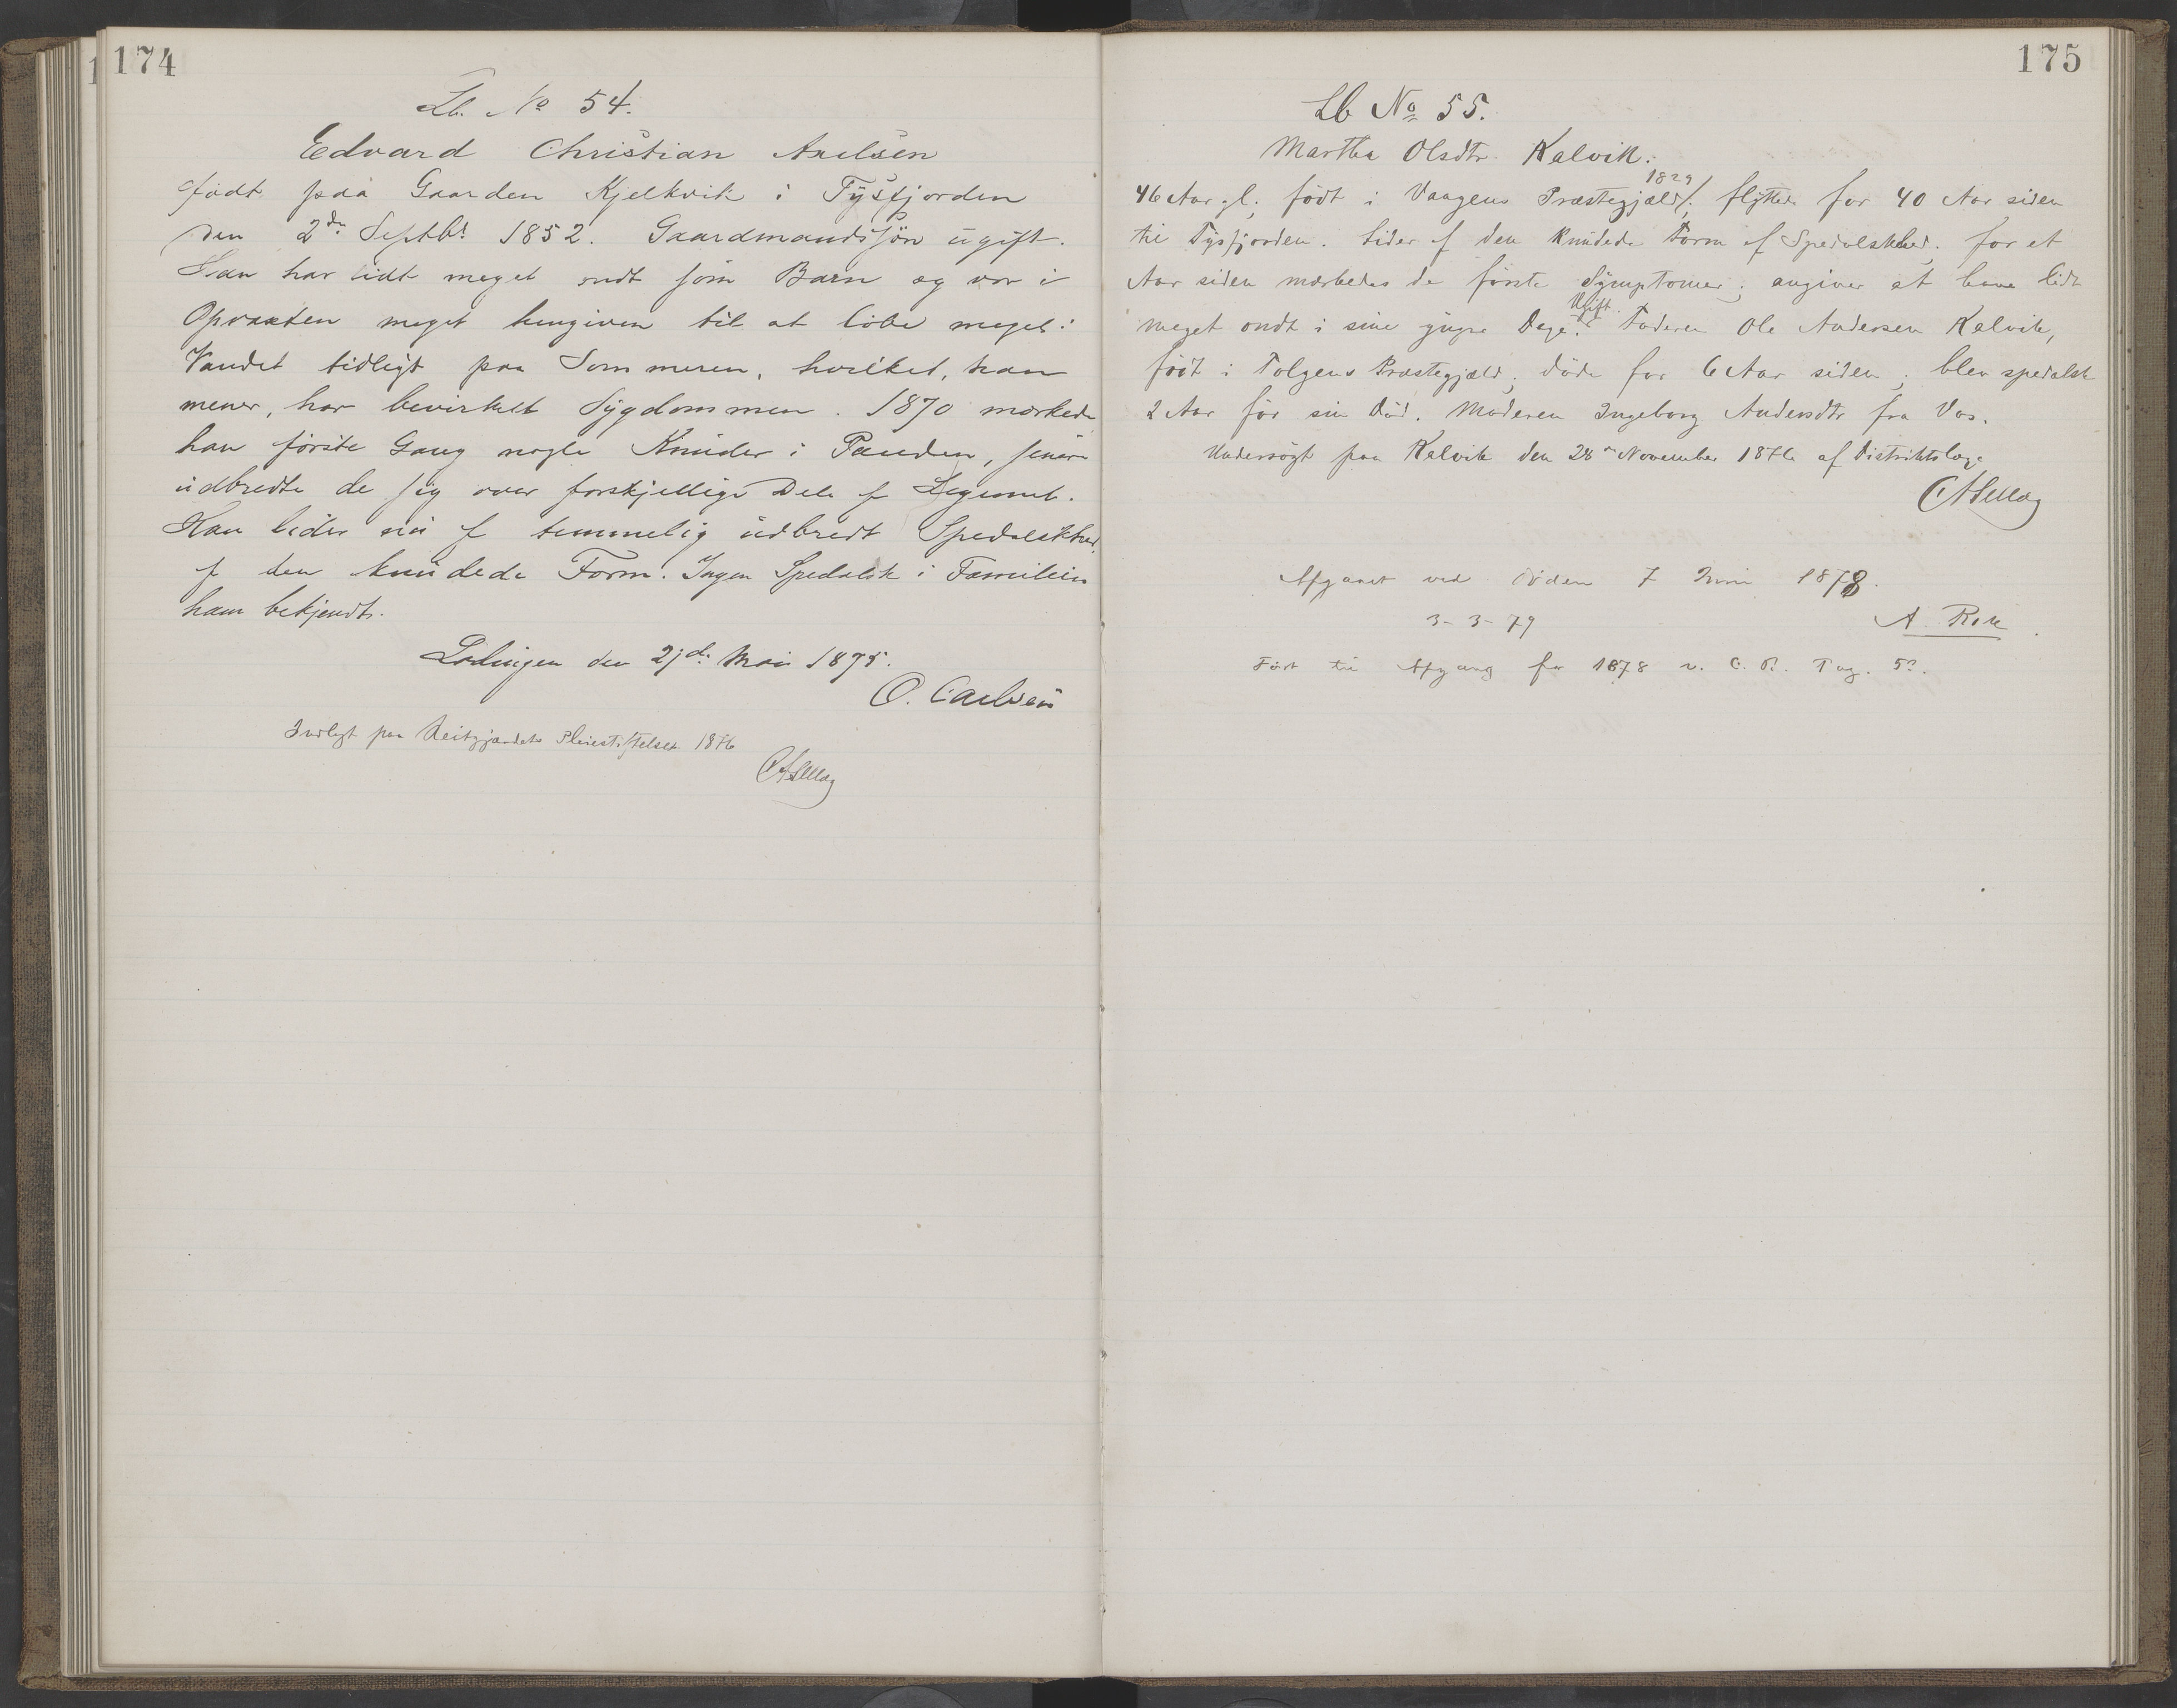 174
Lb. No 54.
Edvard Christian Axelsen
født paa Gaarden Kjelkvik i Tysfjorden
den 2den Septbr 1852. Gaardmandssøn ugift.
Han har lidt meget ondt som Barn og var i
Opvæxten meget hengiven til at løbe meget i
Vandet tidligt paa Sommeren, hvilket, han
mener, har bevirket Sygdommen. 1870 mærkede
han første Gang nogle Knuder i Panden, senere
udbredte de sig over forskjellige Dele af Legemet.
Han lider nu af temmelig udbredt Spedalskhed
af den knudede Form. Ingen Spedalsk i Familien
ham bekjendt.
Lødingen den 21de Mai 1875.
O. Carlsen
Indlagt paa Reitgjærdets Pleiestiftelse 1876
175
Lb No 55.
Martha Olsdtr Kalvik.
46 Aar gl. født i Vaagens Præstegjæld /: 1829 flyttede for 40 Aar siden
til Tysfjorden. Lider af den knudede Form af Spedalskhed; for et
Aar siden mærkedes de første Symptomer; angiver at have lidt
meget ondt i sine yngre Dage. Ugift. Faderen Ole Andersen Kalvik,
født i Tolgens Præstegjæld; døde for 6 Aar siden; blev spedalsk
2 Aar før sin Død. Moderen Ingeborg Andersdtr fra Vos.
Undersøgt paa Kalvik den 28de November 1876 af Distriktslæge
Afgaaet ved Døden 7 Juni 1878.
3-3-79
Ført til Afgang for 1878 v. C. B. Pag.